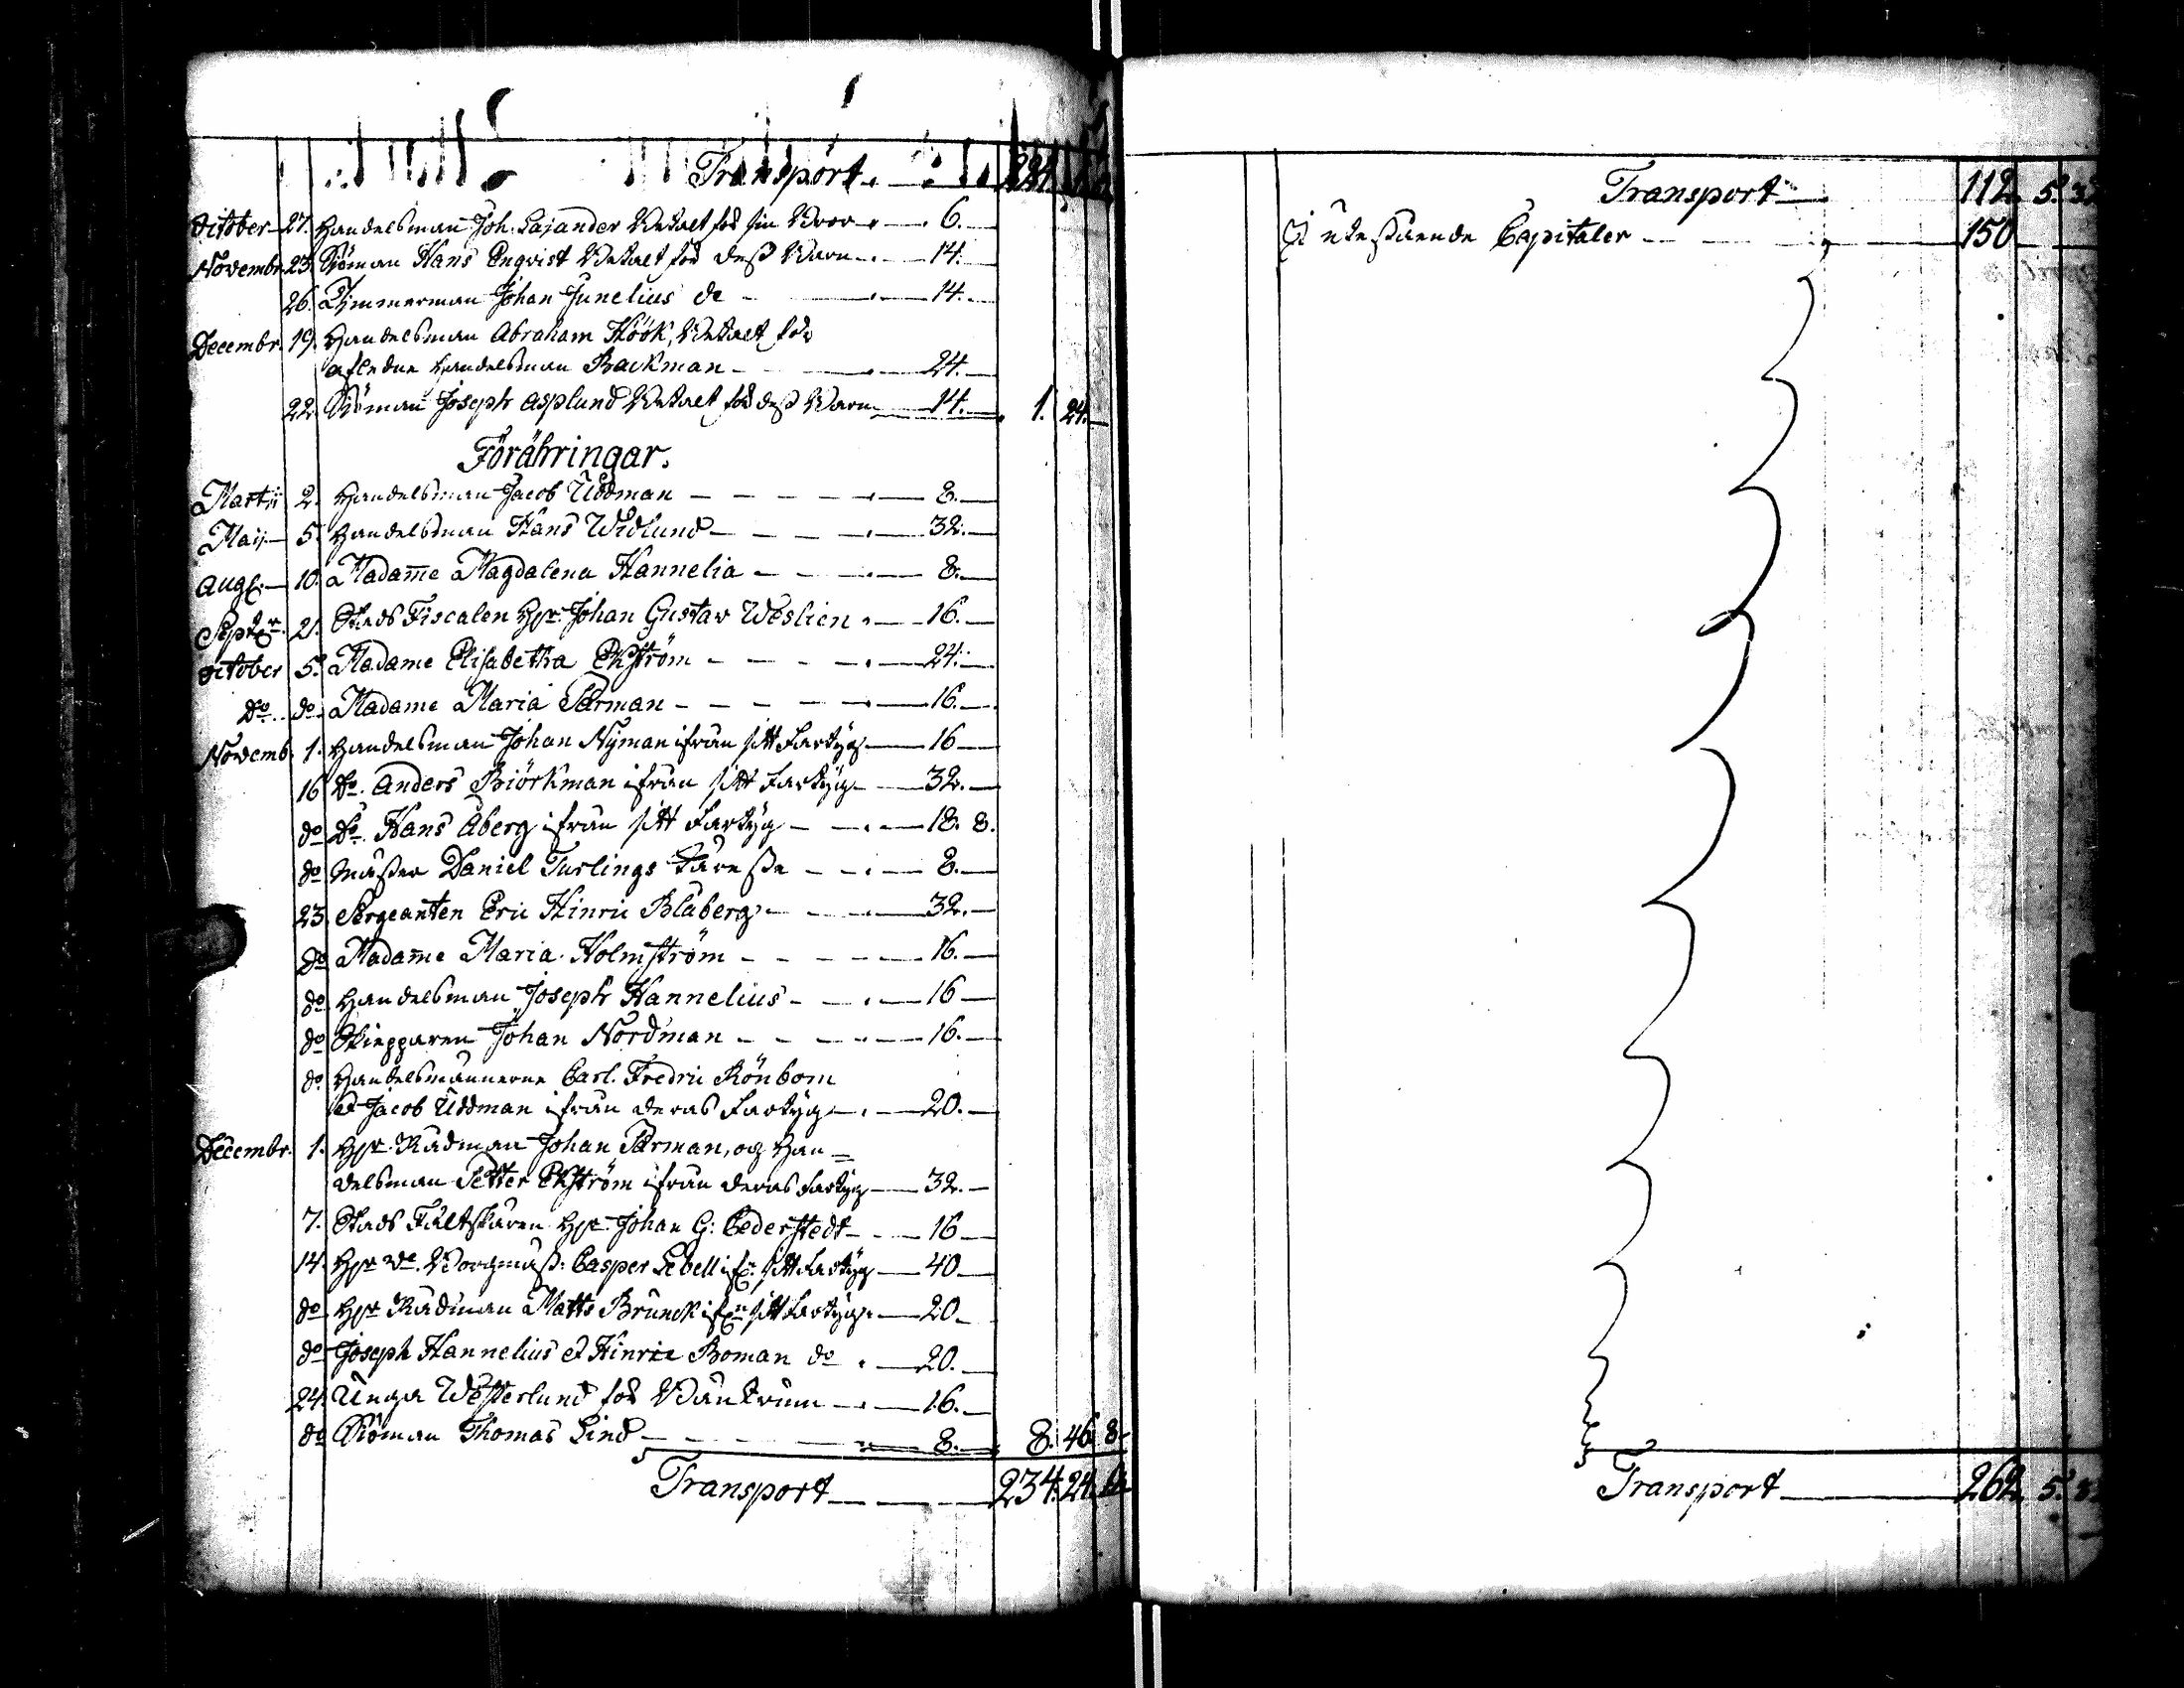 Transport
October 27. Handelsman Joh. Cajander Betalt för sin Broor 6.
Novembr 23. Siöman Hans Enqvist Betalt för dess Barn 14.
26. Timmerman Johan Junelius do 14.
Decembr. 19. Handelsman Abraham Höök, Betalt för
afledne Handelsman Backman 24.
22. Siöman Joseph Asplund Betalt för dess Barn 14. 1. 24.
Förähringar.
Martii 2. Handelsman Jacob Uddman 8.
Maij 5. Handelsman Hans Widlund 32.
Aug. 10. Madame Magdalena Hannelia 8.
Septr. 21. Stads Fiscalen Hr. Johan Gustav Weslien 16.
October 5. Madame Elisabetha Ekström 24.
Do. do Madame Maria Särman 16.
Novemb. 1. Handelsman Johan Nyman ifrån sitt Fartyg 16
16 Do. Anders Biörkman ifrån sitt Fartyg 32.
do Do. Hans Åberg ifrån sitt Fartyg 18. 8.
do Mäster Daniel Turlings 8.
23 Sergeanten Eric Hinric Blåberg 32.
do Madame Maria Holmström 16.
do Handelsman Joseph Hannelius 16
do Skepparen Johan Nordman 16.
do Handelsmännerne Carl Fredric Rönbom
et Jacob Uddman ifrån deras Fartyg 20.
Decembr. 1. Hr. Rådman Johan Särman, og Han=
delsman Petter Ekström ifrån deras Fartyg 32.
7. Stads Fältskären Hr. Johan G: Cederstedt 16
14. Hr Vc. Borgmäst: Casper Lebell ifrn sitt Fartyg 40
do Hr Rådman Matts Brunck ifrn sitt Fartyg 20.
do Joseph Hannelius et Hinric Boman do 20.
24. Unga Westerlund för Bänkrum 16.
do Siöman Thomas Lind 8. 8. 46 8
Transport 234. 24.
Transport 112. 5.
I utestående Capitaler 150
Transport 262. 5.